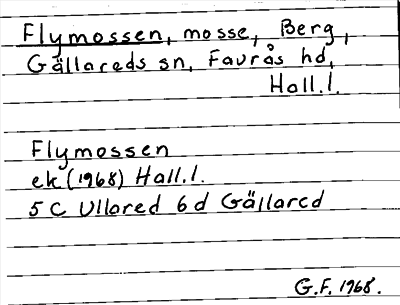 Flymossen, mosse, Berg,
Gällareds sn, Faurås hd,
Hall.l.
Flymossen
ek (1968) Hall.l.
5 C Ullared 6 d Gällared
G.F. 1968.